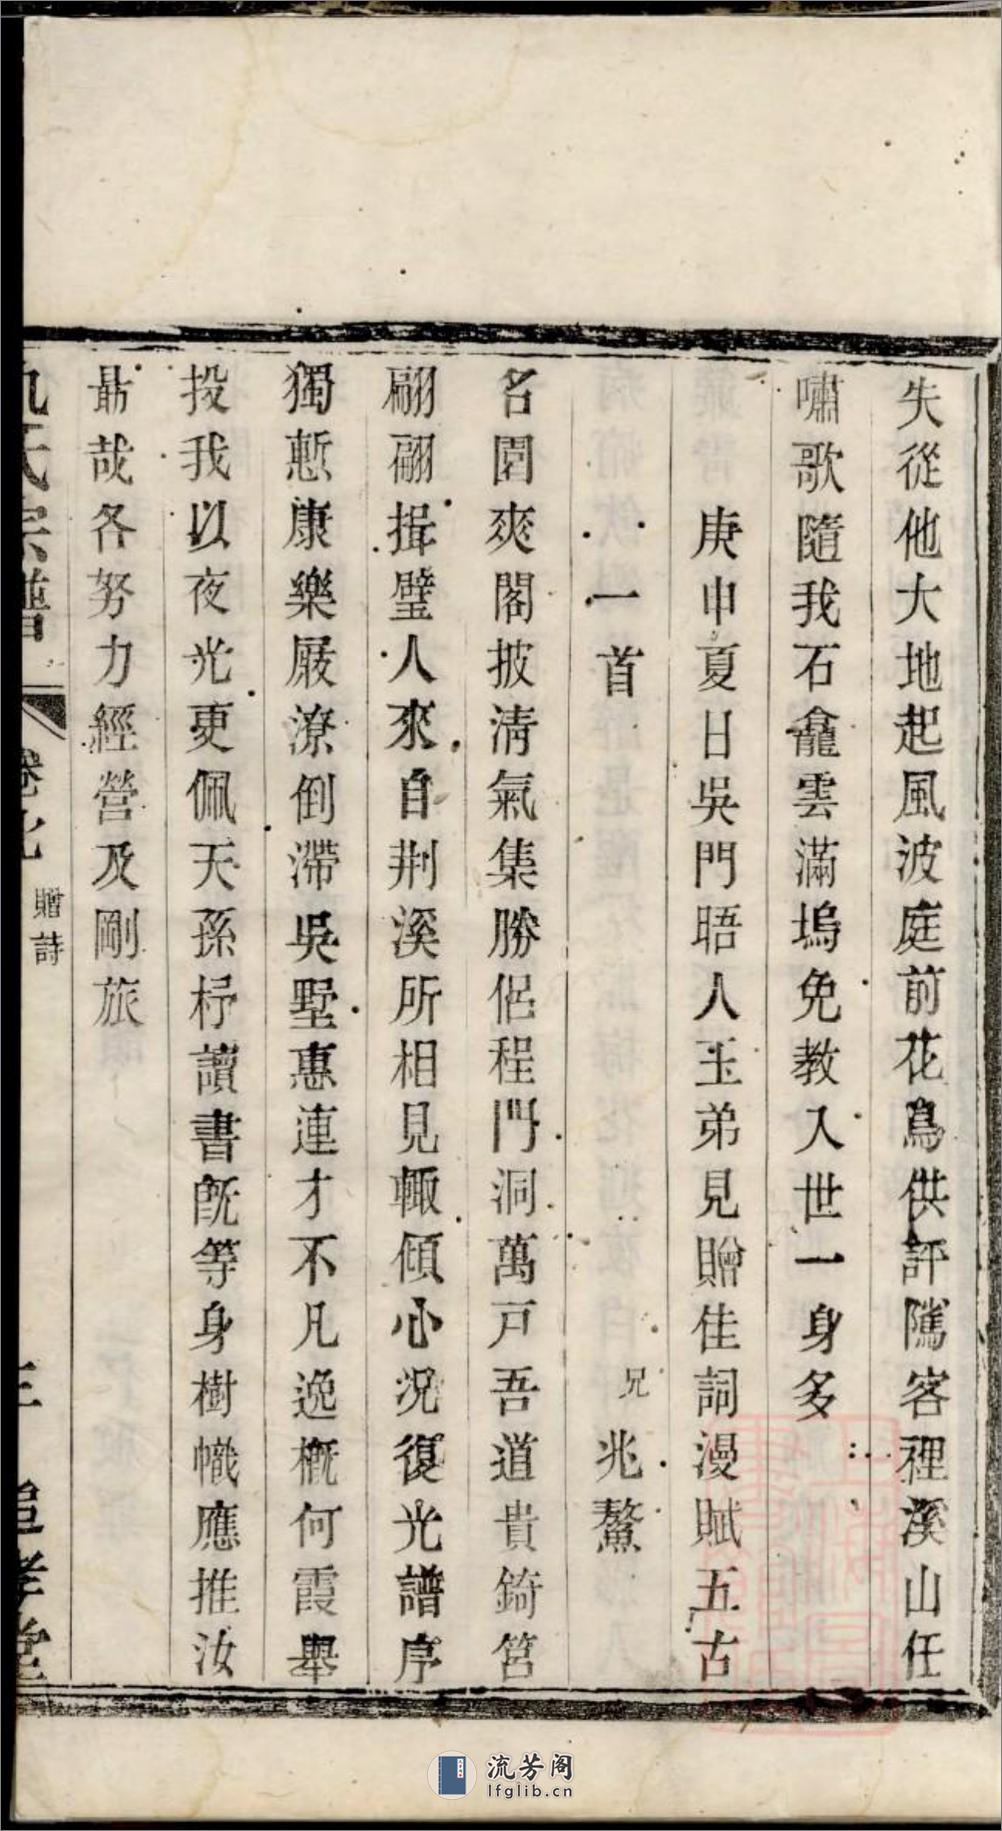 失從他大地起風波庭前花鳥供評隲客裡溪山任
嘯歌隨我石龕雲滿塢免教入世一身多
庚申夏日吳門晤人玉弟見贈佳詞漫賦五古
一首
兄 兆鰲
名園爽閣披清氣集勝侶程門洞萬戸吾道貴錡筥
翩翩揖璧人來自荆溪所相見輙傾心况復光譜序
獨慙康樂屐潦倒滯吳墅惠連才不凡逸概何霞舉
投我以夜光更佩天孫杼讀書旣等身樹幟應推汝
勗哉各努力經營及剛旅
氏宗譜 卷 贈詩 追孝堂
流芳阁
lfglib.cn